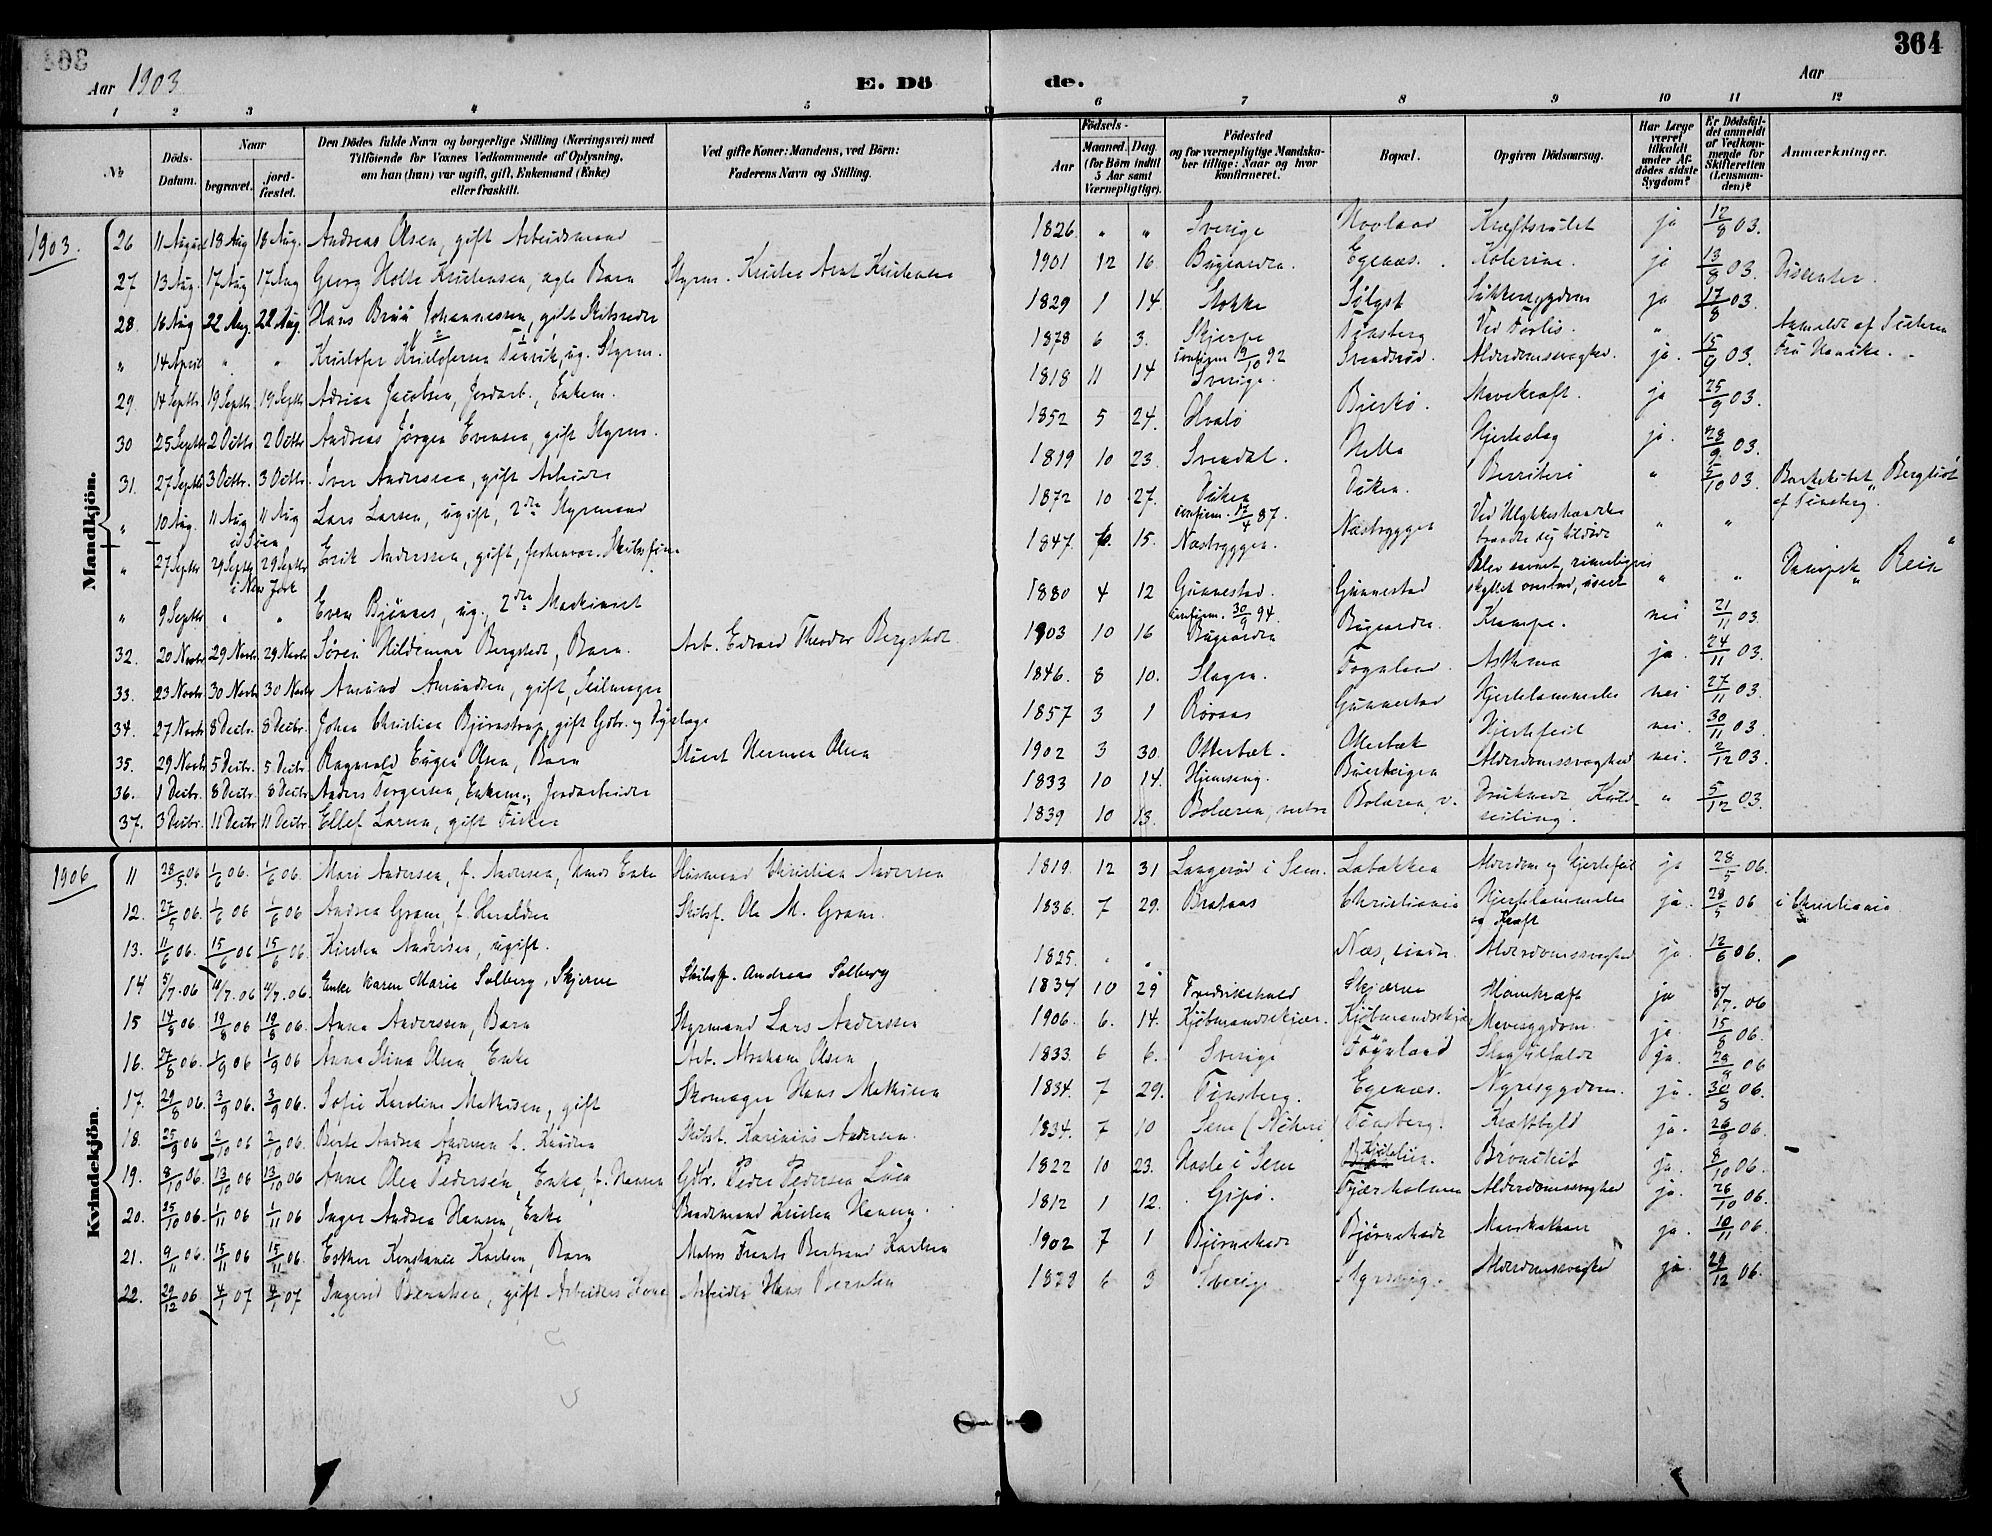 364
Aar 1903 E. Dö de. Aar
1 2 3 4 5 6 7 8 9 10 11 12
№
Döds-Datum.
Naar begravet. jordfæstet.
Den Dödes fulde Navn og borgerlige Stilling (Næringsvei) med Tilföiende for Voxnes Vedkommende af Oplysning, om han (hun) var ugift, gift, Enkemand (Enke) eller fraskilt.
Ved gifte Koner: Mandens, ved Börn: Faderens Navn og Stilling.
Födsels- Aar Maaned. Dag. (for Börn indtil 5 Aar samt Værnepligtige).
Födested og for værnepligtige Mandskaber tillige: Naar og hvor konfirmeret.
Bopæl.
Opgiven Dödsaarsag.
Har Læge været tilkaldt under Afdödes sidste Sygdom?
Er Dödsfaldet anmeldt af Vedkommende for Skifteretten (Lensmanden)?
Anmærkninger.
Mandkjön.
1903. 26 11 August 18 Aug 18 Aug. Andreas Olsen, gift Arbeidsmand 1826. " " Sverige Kræftsvulst ja 12/8 03.
27 13 Aug. 17 Aug 17 Aug Georg Holte Kristensen, ægte Barn Styrm. 1901 12 16 Bugaarden. Egenæs. Kolerine. ja 13/8 03. Dissenter.
28. 16 Aug 22 Aug. 22 Aug. Hans Johannessen, gift Skibsreder 1829 1 14 Stokke Sukkersygdom ja 17/8 03.
" 14 April " " Kristofer Kristofersen ug. Styrm. 1878 6 3. confirm. 92 Tønsberg Ved Forlis. " Anmeldt af
29. 14 Septbr 19 Septbr 19 Septbr Adrian Jacobsen, Jordarb., Enkem. 1818 11 14 Sverige. Alderdomssvaghed. ja. 15/9 03.
30 25 Septbr 2 Octbr 2 Octbr Andreas Jørgen Evensen, gift Styrm. 1852 5 24. Hvalø Mavekræft. ja 25/9 03.
31. 27 Septbr 3 Octbr. 3 Octbr. Iver Andersen, gift Arbeider 1819 10 23. Svendal. Hjerteslag ja. 28/9 03.
" 10 Aug. 11 Aug 11 Aug Lars Larsen, ugift, 2den Styrmand 1872 10 27. confirm. 87. " 5/10 03. af Tønsberg.
" 27 Septbr 29 Septbr 29 Septbr i New York Erik Andersen, gift, 1847. 15. Ved Ulykkeshændelse " "
" 9 Septbr " " Even Bjønnes, ug., 2den Maskinist 1880 4 12 Gunnestad. confirm. 30/9 94. Gunnestad Blev savnet, rimeligvis skyllet overbord, " "
32. 20 Novbr 29 Novbr. 29 Novbr Søren Hildemar Bergstedt, Barn. Arb. Edvard Theodor Bergstedt. 1903 10 16 Bugaarden Bugaarden. Krampe. nei 21/11 03.
33. 23 Novbr 30 Novbr 30 Novbr Amund Amundsen, gift, Seilmager 1846. 8 10. Slagen. Asthma ja. 24/11 03.
34. 27 Novbr 8 Decbr. 8 Decbr. Johan Christian Bjørnstrup, gift Gdbr. og Dyrlæge 1857 3 1 Røraas Gunnestad Hjertelammelse nei 27/11 03.
35. 29 Novbr 5 Decbr. 5 Decbr Ragnvald Eugen Olsen, Barn Stuert Herman Olsen 1902 3 30. Otterbæk. Otterbæk Hjertefeil nei. 30/11 03.
36. 1 Decbr. 8 Decbr. 8 Decbr. Anders Torgersen, Enkem., Jordarbeider 1833 10 14. Hjemseng. Alderdomssvaghed nei. 2/12 03.
37. 3 Decbr. 11 Decbr 11 Decbr. Ellef Larsen, gift Fisker 1839 10 13. Bolæren, Bolæren, v. Druknede, Kuldseiling. " 5/12 03.
Kvindekjön.
1906 11 28/5 06 1/6 06. 1/6 06. Mari Andersen, f. Andersen, Enke Husmand Christian Andersen 1819. 12 31 Langerød i Sem. Labakken Alderdom og Hjertefeil ja 28/5 06.
12. 27/5 06. 1/6 06 1/6 06 Andrea Gram, f. Skibsf. Ole M. Gram. 1836. 7 29. Brataas Christiania Hjertelammelse og Kræft ja. 28/5 06 i Christiania
13. 11/6 06. 15/6 06 15/6 06 Kirsten Andersen, ugift. 1825. " " Næs, Alderdomssvaghed ja. 12/6 06.
14 5/7 06 11/7. 06 11/7. 06. Enke Karen Marie Solberg, Skjerve Skibsf. Andreas Solberg 1834 10 29 Fredrikshald Skjærve ja 5/7. 06
15 14/8 06. 19/8 06 19/8 06. Anna Anderssen, Barn Styrmand Lars Anderssen 1906. 6. 14. Kjøbmandskjær. Kjøbmandskjær Mavesygdom. ja. 15/8 06.
16. 27/8 06. 1/9 06 1/9 06 Anna Stina Olsen, Enke Arb. Abraham Olsen 1833. 6 6. Sverige Slagtilfælde ja.
17. 29/8 06. 3/9 06. 3/9 06. Sofie Karoline Mathisen, gift Skomager Hans Mathisen 1834. 7 29. Tønsberg. Egenæs. Nyresygdom. ja. 30/8 06.
18. 25/9 06 2/10 06 2/10 06. Berte Andrea Andersen f. Knudsen Skibsf. Karinius Andersen. 1834. 7 10 Sem Tønsberg. Kræftbyld ja. 26/9 06.
19. 8/10 06. 13/10 06 13/10 06 Anne Olea Pedersen, Enke, f. Hansen Gdbr. Peder Pedersen 1822 10 23. Hasle i Sem Bronchit ja. 8/10 06.
20. 25/10 06. 1/11 06 1/11 06 Inger Andrea Hansen, Enke Baadsmand Kristen Hansen. 1812 1 12. Gipø. Fjærholmen Alderdomssvaghed ja. 26/10 06.
21. 9/11 06. 15/11 06 15/11 06. Esther Konstance Karlsen, Barn Matros Frants Bertrand Karlsen 1902 7 1 Bjørnebode Bjørnebode ja. 10/11 06.
22. 29/12 06. 4/1 07 4/1 07 Ingrid Berntsen, gift Arbeiders Kone Arbeider Hans Berntsen 1828 6 3 Sverige Alderdomssvaghed ja. 29/12 06.